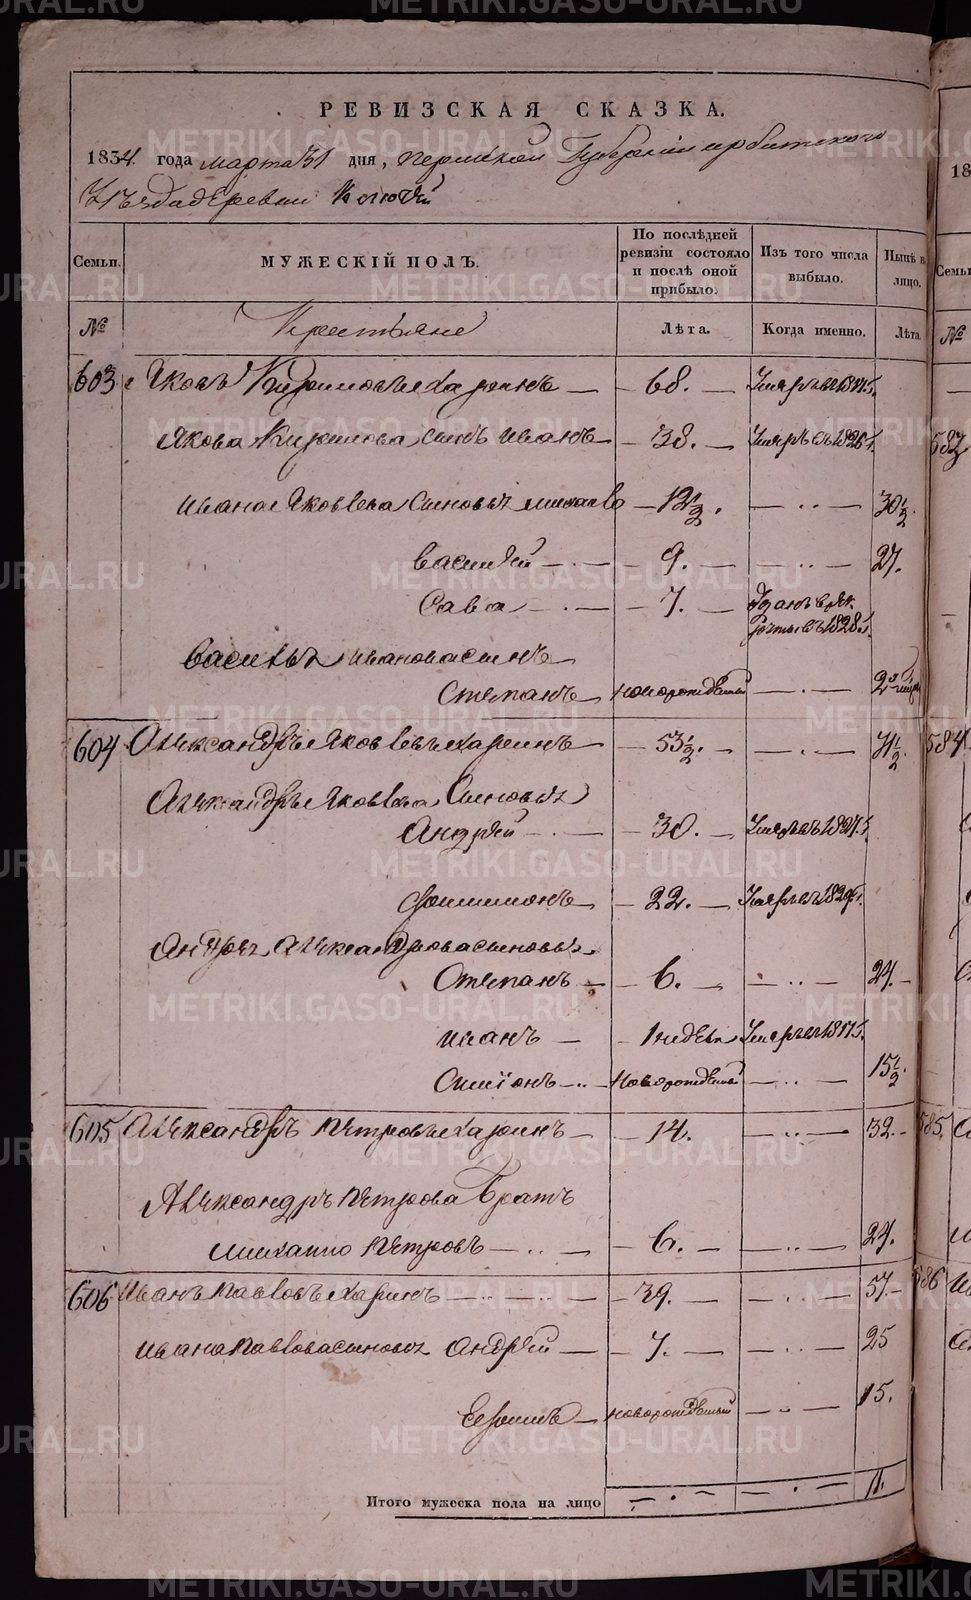 РЕВИЗСКАЯ СКАЗКА.
1834. года марта 31 дня, Пермской Губернии ирбитского
Уѣзда деревни Ключей
Семьи. МУЖЕСКІЙ ПОЛЪ. По послѣдней ревизіи состояло и послѣ оной прибыло. Изъ того числа выбыло. Нынѣ въ лицо.
№ Крестьяне Лѣта. Когда именно. Лѣта.
603 Яковъ Кириловъ Харинъ — 68. — Умеръ въ 18 г.
Якова Кирилова сынъ Иванъ — 38. — Умеръ въ 1826 г.
Ивана Яковлева сыновья Михайло — 12½. — .. — 30½.
Василей — . — 9. — .. — 27.
Сава — . — 7. — въ 1828 г.
Василья Иванова сынъ
Степанъ новорожденный — . — 2
604 Александръ Яковлевъ Харинъ — 53½. — . — 71½.
Александра Яковлева Сыновья
Андрей — . — 30. — Умеръ въ 1827 г.
Филимонъ — 22. — Умеръ въ 182 г.
Андрея Александрова сыновья
Степанъ — 6. — .. — 24.
Иванъ — 1 недѣл Умеръ въ 18 г.
Симіонъ — .. Новорожденный — .. — 15½.
605 Александръ Петровъ Харинъ — 14. — .. — 32.
Александра Петрова Братъ
Михайло Петровъ — .. — 6. — .. — 24.
606 Иванъ Павловъ Харинъ — 39. — .. — 57.
Ивана Павлова сыновья Андрей — 7. — .. — 25
Ефимъ — новорожденный — .. — 15.
Итого мужеска пола на лицо — . — — . — 11.
18
Семьи
№
583
584
585.
586